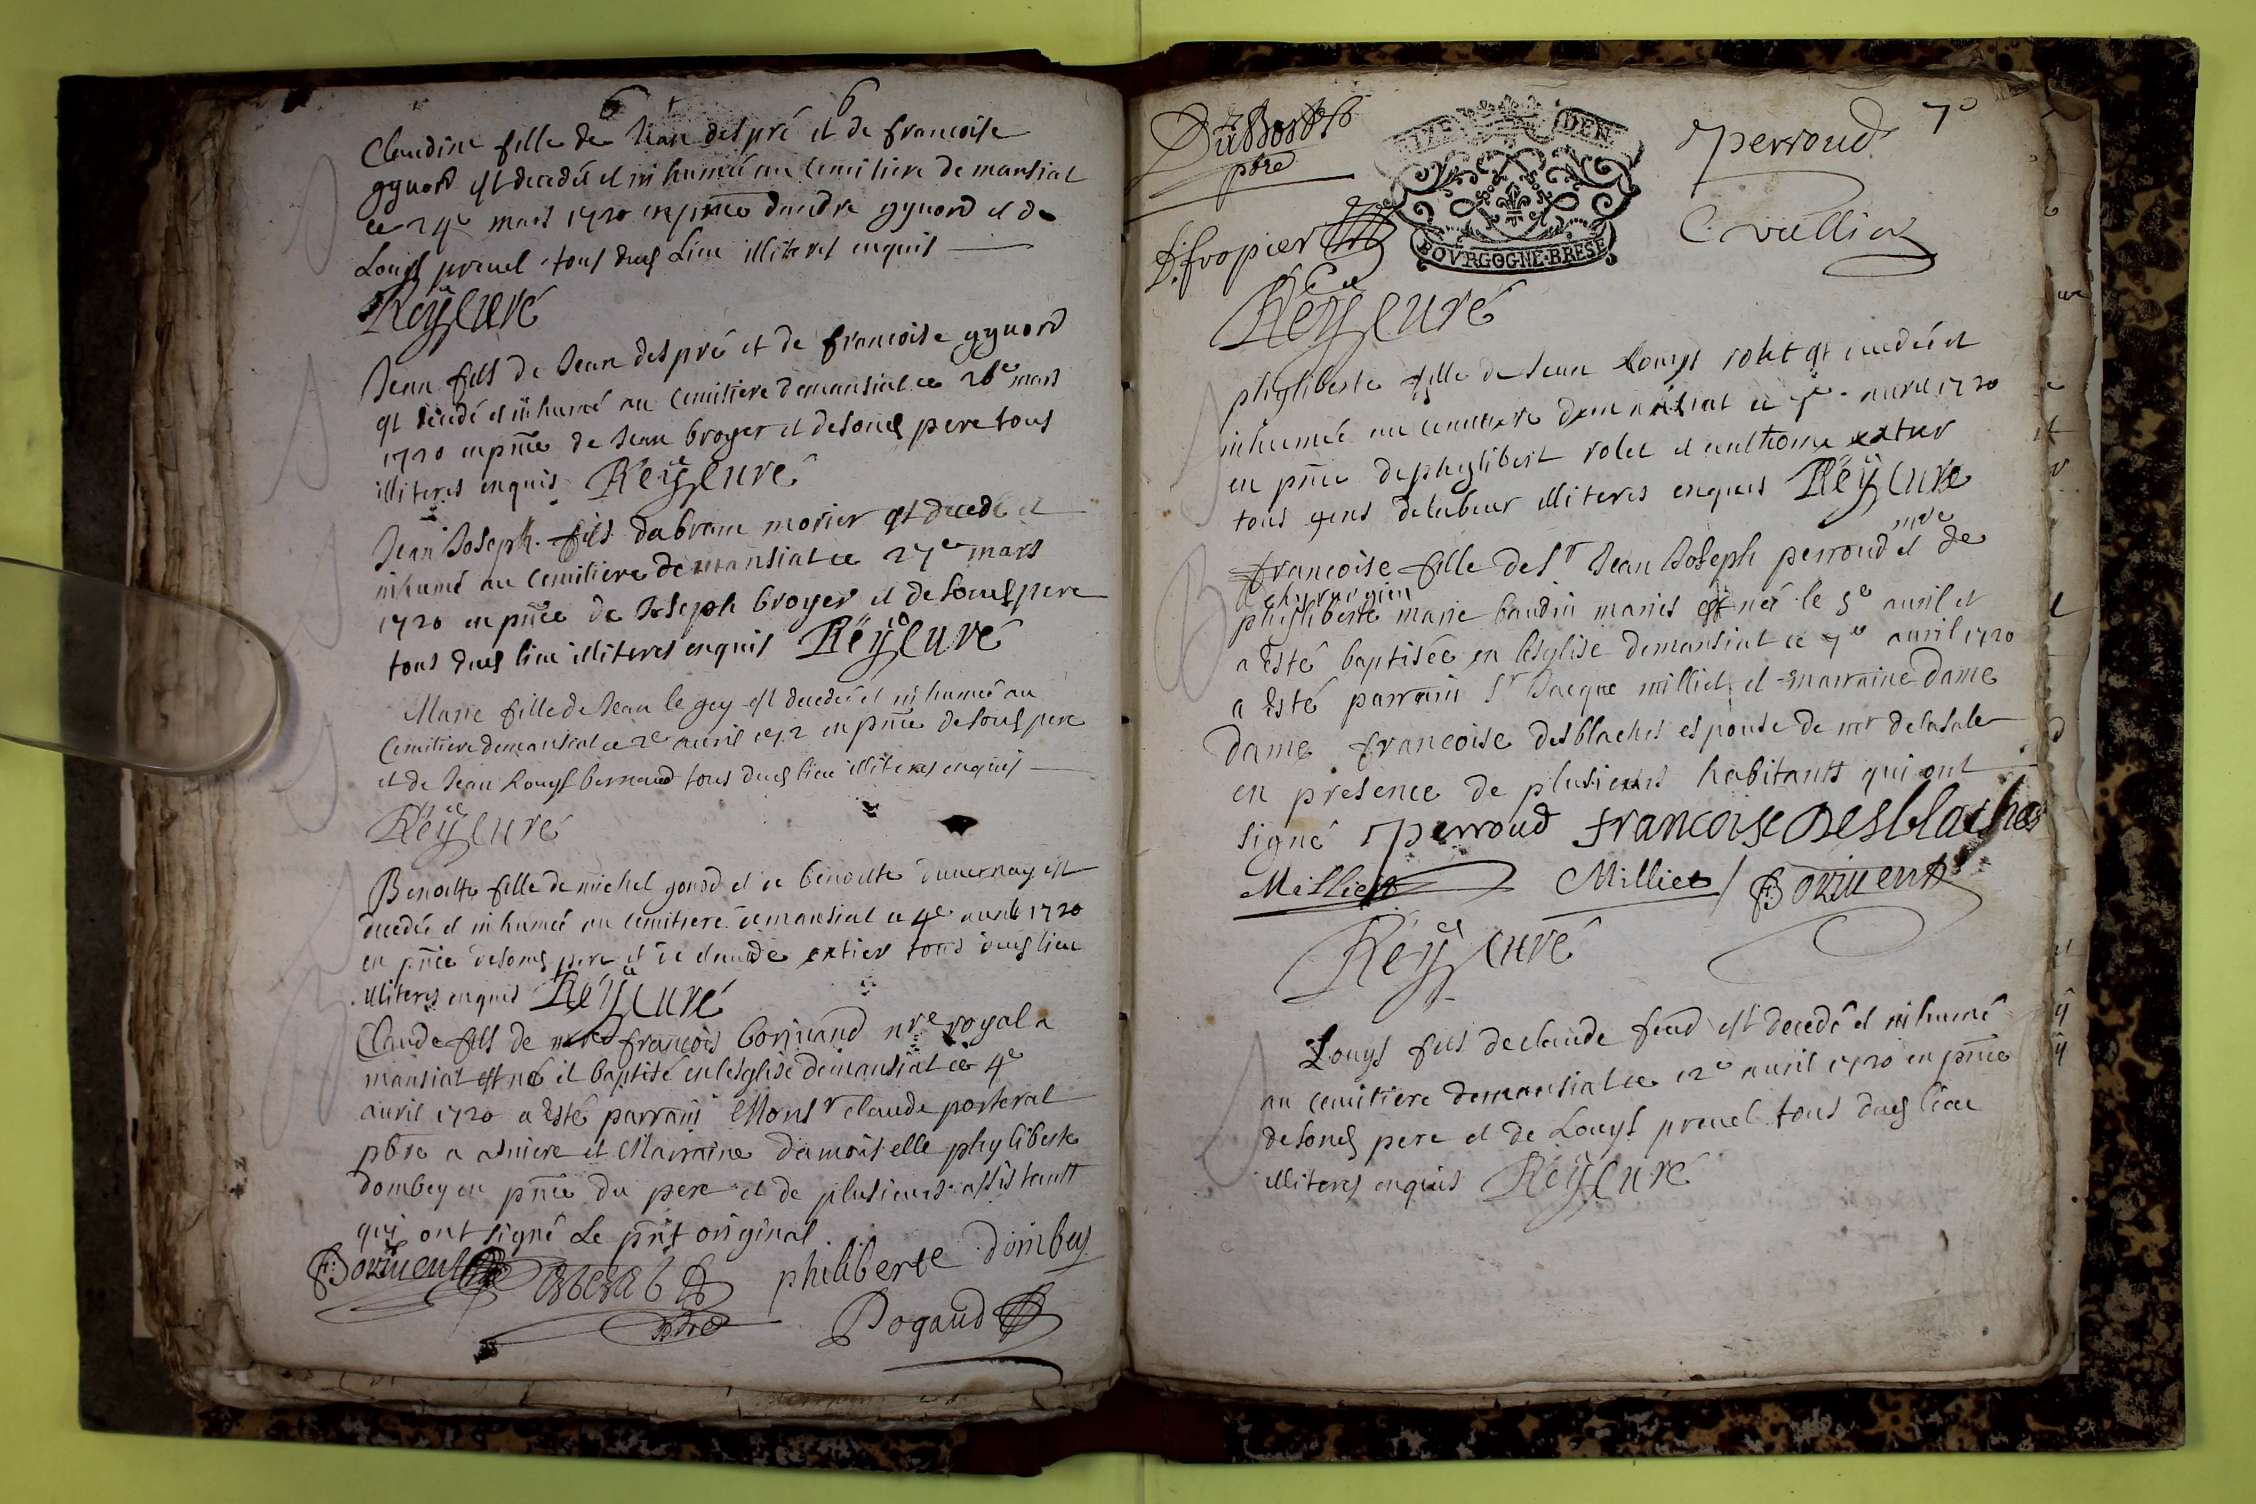 Claudine fille de Jean despré et de francoise
gyuord est decedée et inhumée au cemitiere de mansiat
ce 24e mars 1720 en pnce dandre gyuord et de
Louys preuel tous dud lieu illiteres enquis
Reÿ curé
Jean fils de Jean despré et de francoise gyuord
est decedé et inhumé au cemitiere de mansiat ce 26e mars
1720 en pnce de Jean broyer et de sond pere tous
illiteres enquis Reÿ curé
Jean Joseph fils dabram morier est decedé et
inhumé au cemitiere de mansiat ce 27e mars
1720 en pnce de Joseph broyer et de sond pere
tous dud lieu illiteres enquis Reÿ curé
Marie fille de Jean le gey est decedée et inhumée au
cemitiere de mansiat ce 2e auril en pnce de sond pere
et de Jean Louys bernaud tous dud lieu illiteres enquis
Reÿ curé
Benoitte fille de michel gonod et de benoitte duuernay est
decedée et inhumée au cemitiere de mansiat ce 4e auril 1720
en pnce de sond pere et de claude extier tous dud lieu
illiteres enquis Reÿ curé
Claude fils de françois borjuand nre royal a
mansiat est né et baptisé en lesglise de mansiat ce 4e
auril 1720 a esté parrain Monsr claude porteral
pbre a asniere et Marraine damoiselle phyliberte
dombey en pnce du pere et de plusieurs assistants
qui ont signé Le pnt original
philiberte dombey
pbre
Pogaud
7e
Dubost
pbre
perroud
BOVRGOGNE·BRESE
Reÿ curé
phyliberte fille de Jean Louys rolet est decedée et
inhumée au cemitiere de mansiat ce 7e auril 1720
en pnce de phylibert rolet et anthome extier
tous gens de labeur illiteres enquis Reÿ curé
francoise fille de Sr Jean Joseph perroud mre
chyrurgien et de
phyliberte marie baudin maries est née le 5e auril et
a esté baptisée en lesglise de mansiat ce 7e auril 1720
a esté parrain Sr Jacque milliet et marraine Dame
Dame francoise desblaches espouse de mr delasale
en presence de plusieurs habitants qui ont
signé perroud francoise Desblaches
Milliet Milliet
Reÿ curé
Louys fils de claude feud est decedé et inhumé
au cemitiere de mansiat ce 12e auril 1720 en pnce
de sond pere et de Louys preuel tous dud lieu
illiteres enquis Reÿ curé